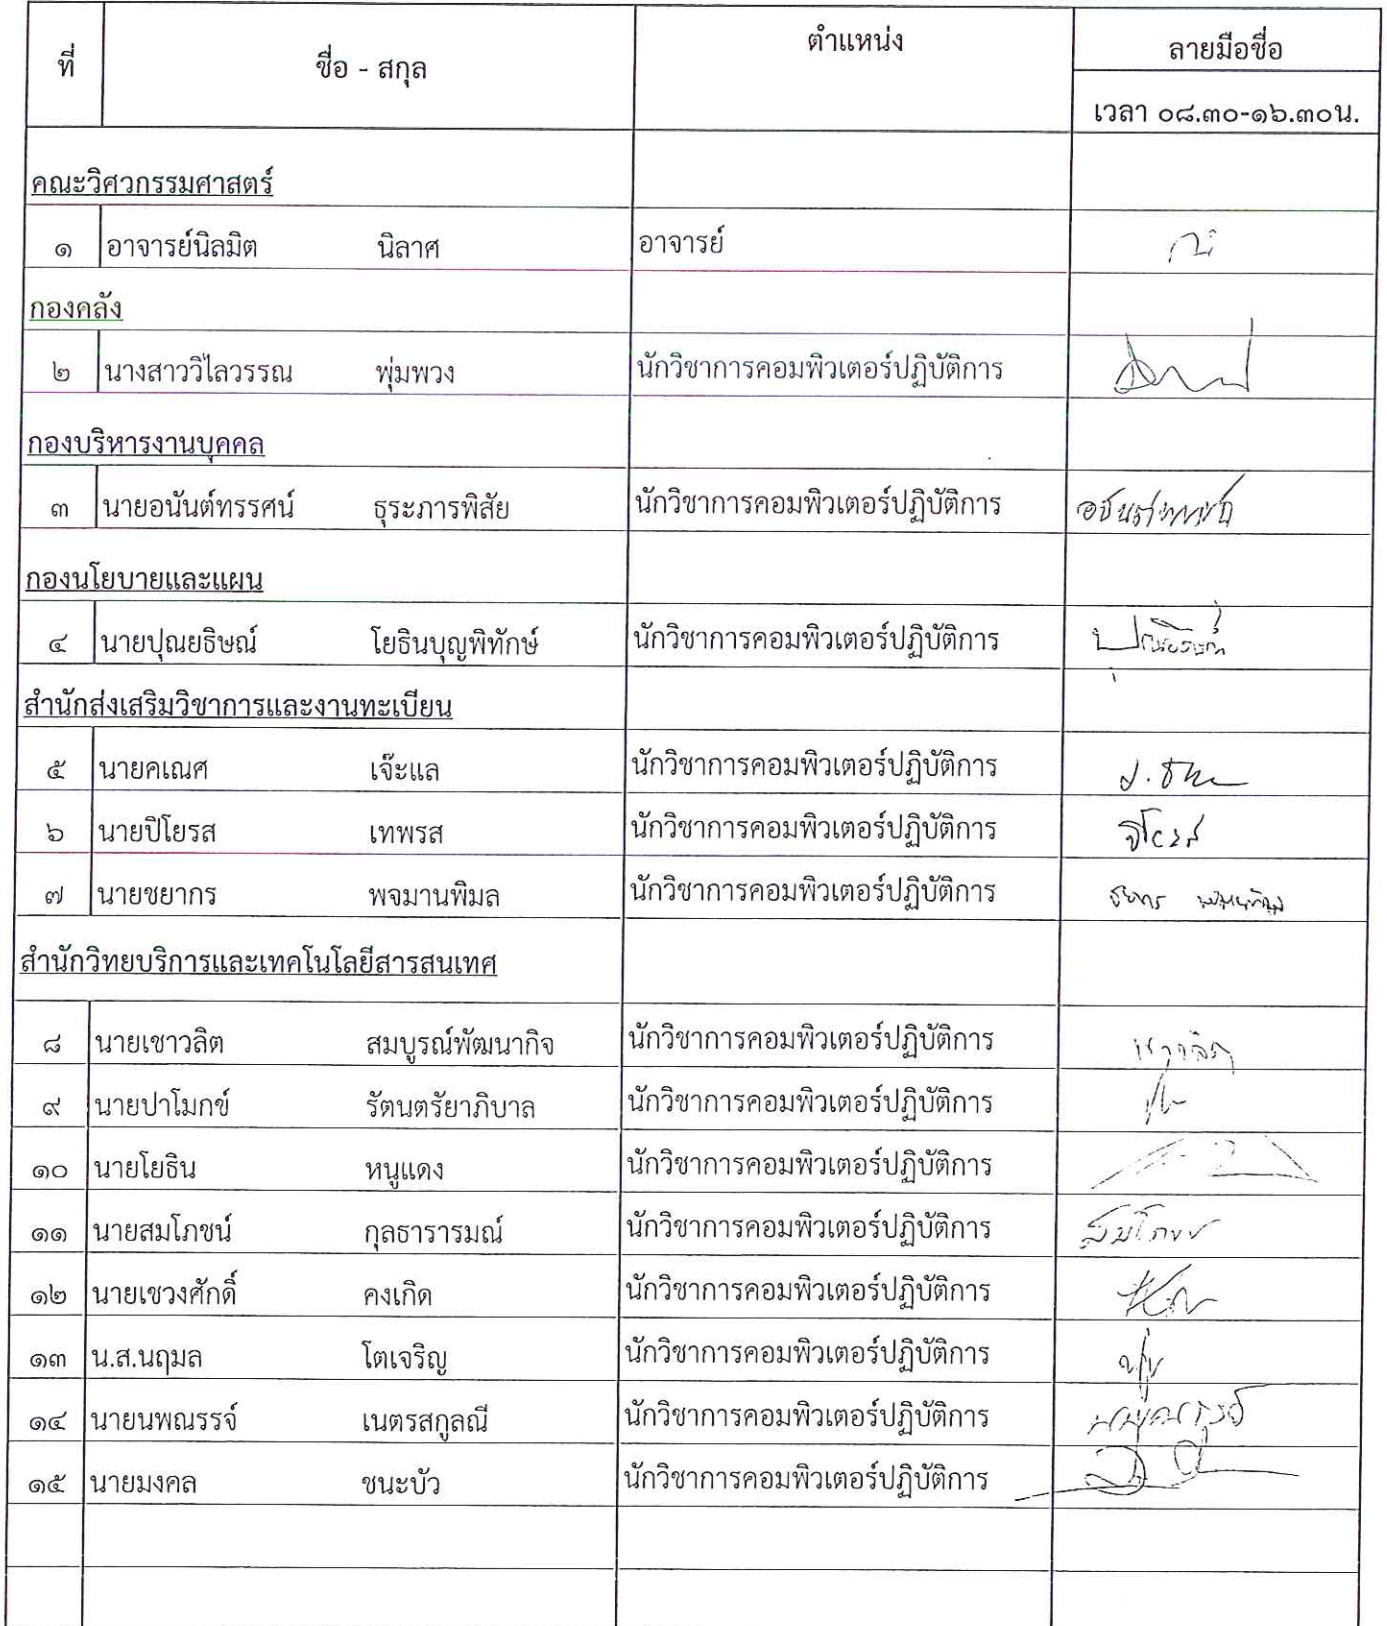 ที่ ชื่อ - สกุล ตำแหน่ง ลายมือชื่อ
เวลา ๐๘.๓๐-๑๖.๓๐น.
คณะวิศวกรรมศาสตร์
๑ อาจารย์นิลมิต นิลาศ อาจารย์
กองคลัง
๒ นางสาววิไลวรรณ พุ่มพวง นักวิชาการคอมพิวเตอร์ปฏิบัติการ
กองบริหารงานบุคคล
๓ นายอนันต์ทรรศน์ ธุระภารพิสัย นักวิชาการคอมพิวเตอร์ปฏิบัติการ
กองนโยบายและแผน
๔ นายปุณยธิษณ์ โยธินบุญพิทักษ์ นักวิชาการคอมพิวเตอร์ปฏิบัติการ
สำนักส่งเสริมวิชาการและงานทะเบียน
๕ นายคเณศ เจ๊ะแล นักวิชาการคอมพิวเตอร์ปฏิบัติการ
๖ นายปิโยรส เทพรส นักวิชาการคอมพิวเตอร์ปฏิบัติการ
๗ นายชยากร พจมานพิมล นักวิชาการคอมพิวเตอร์ปฏิบัติการ ชยากร
สำนักวิทยบริการและเทคโนโลยีสารสนเทศ
๘ นายเชาวลิต สมบูรณ์พัฒนากิจ นักวิชาการคอมพิวเตอร์ปฏิบัติการ
๙ นายปาโมกข์ รัตนตรัยาภิบาล นักวิชาการคอมพิวเตอร์ปฏิบัติการ
๑๐ นายโยธิน หนูแดง นักวิชาการคอมพิวเตอร์ปฏิบัติการ
๑๑ นายสมโภชน์ กุลธารารมณ์ นักวิชาการคอมพิวเตอร์ปฏิบัติการ
๑๒ นายเชวงศักดิ์ คงเกิด นักวิชาการคอมพิวเตอร์ปฏิบัติการ
๑๓ น.ส.นฤมล โตเจริญ นักวิชาการคอมพิวเตอร์ปฏิบัติการ
๑๔ นายนพณรรจ์ เนตรสกูลณี นักวิชาการคอมพิวเตอร์ปฏิบัติการ
๑๕ นายมงคล ชนะบัว นักวิชาการคอมพิวเตอร์ปฏิบัติการ